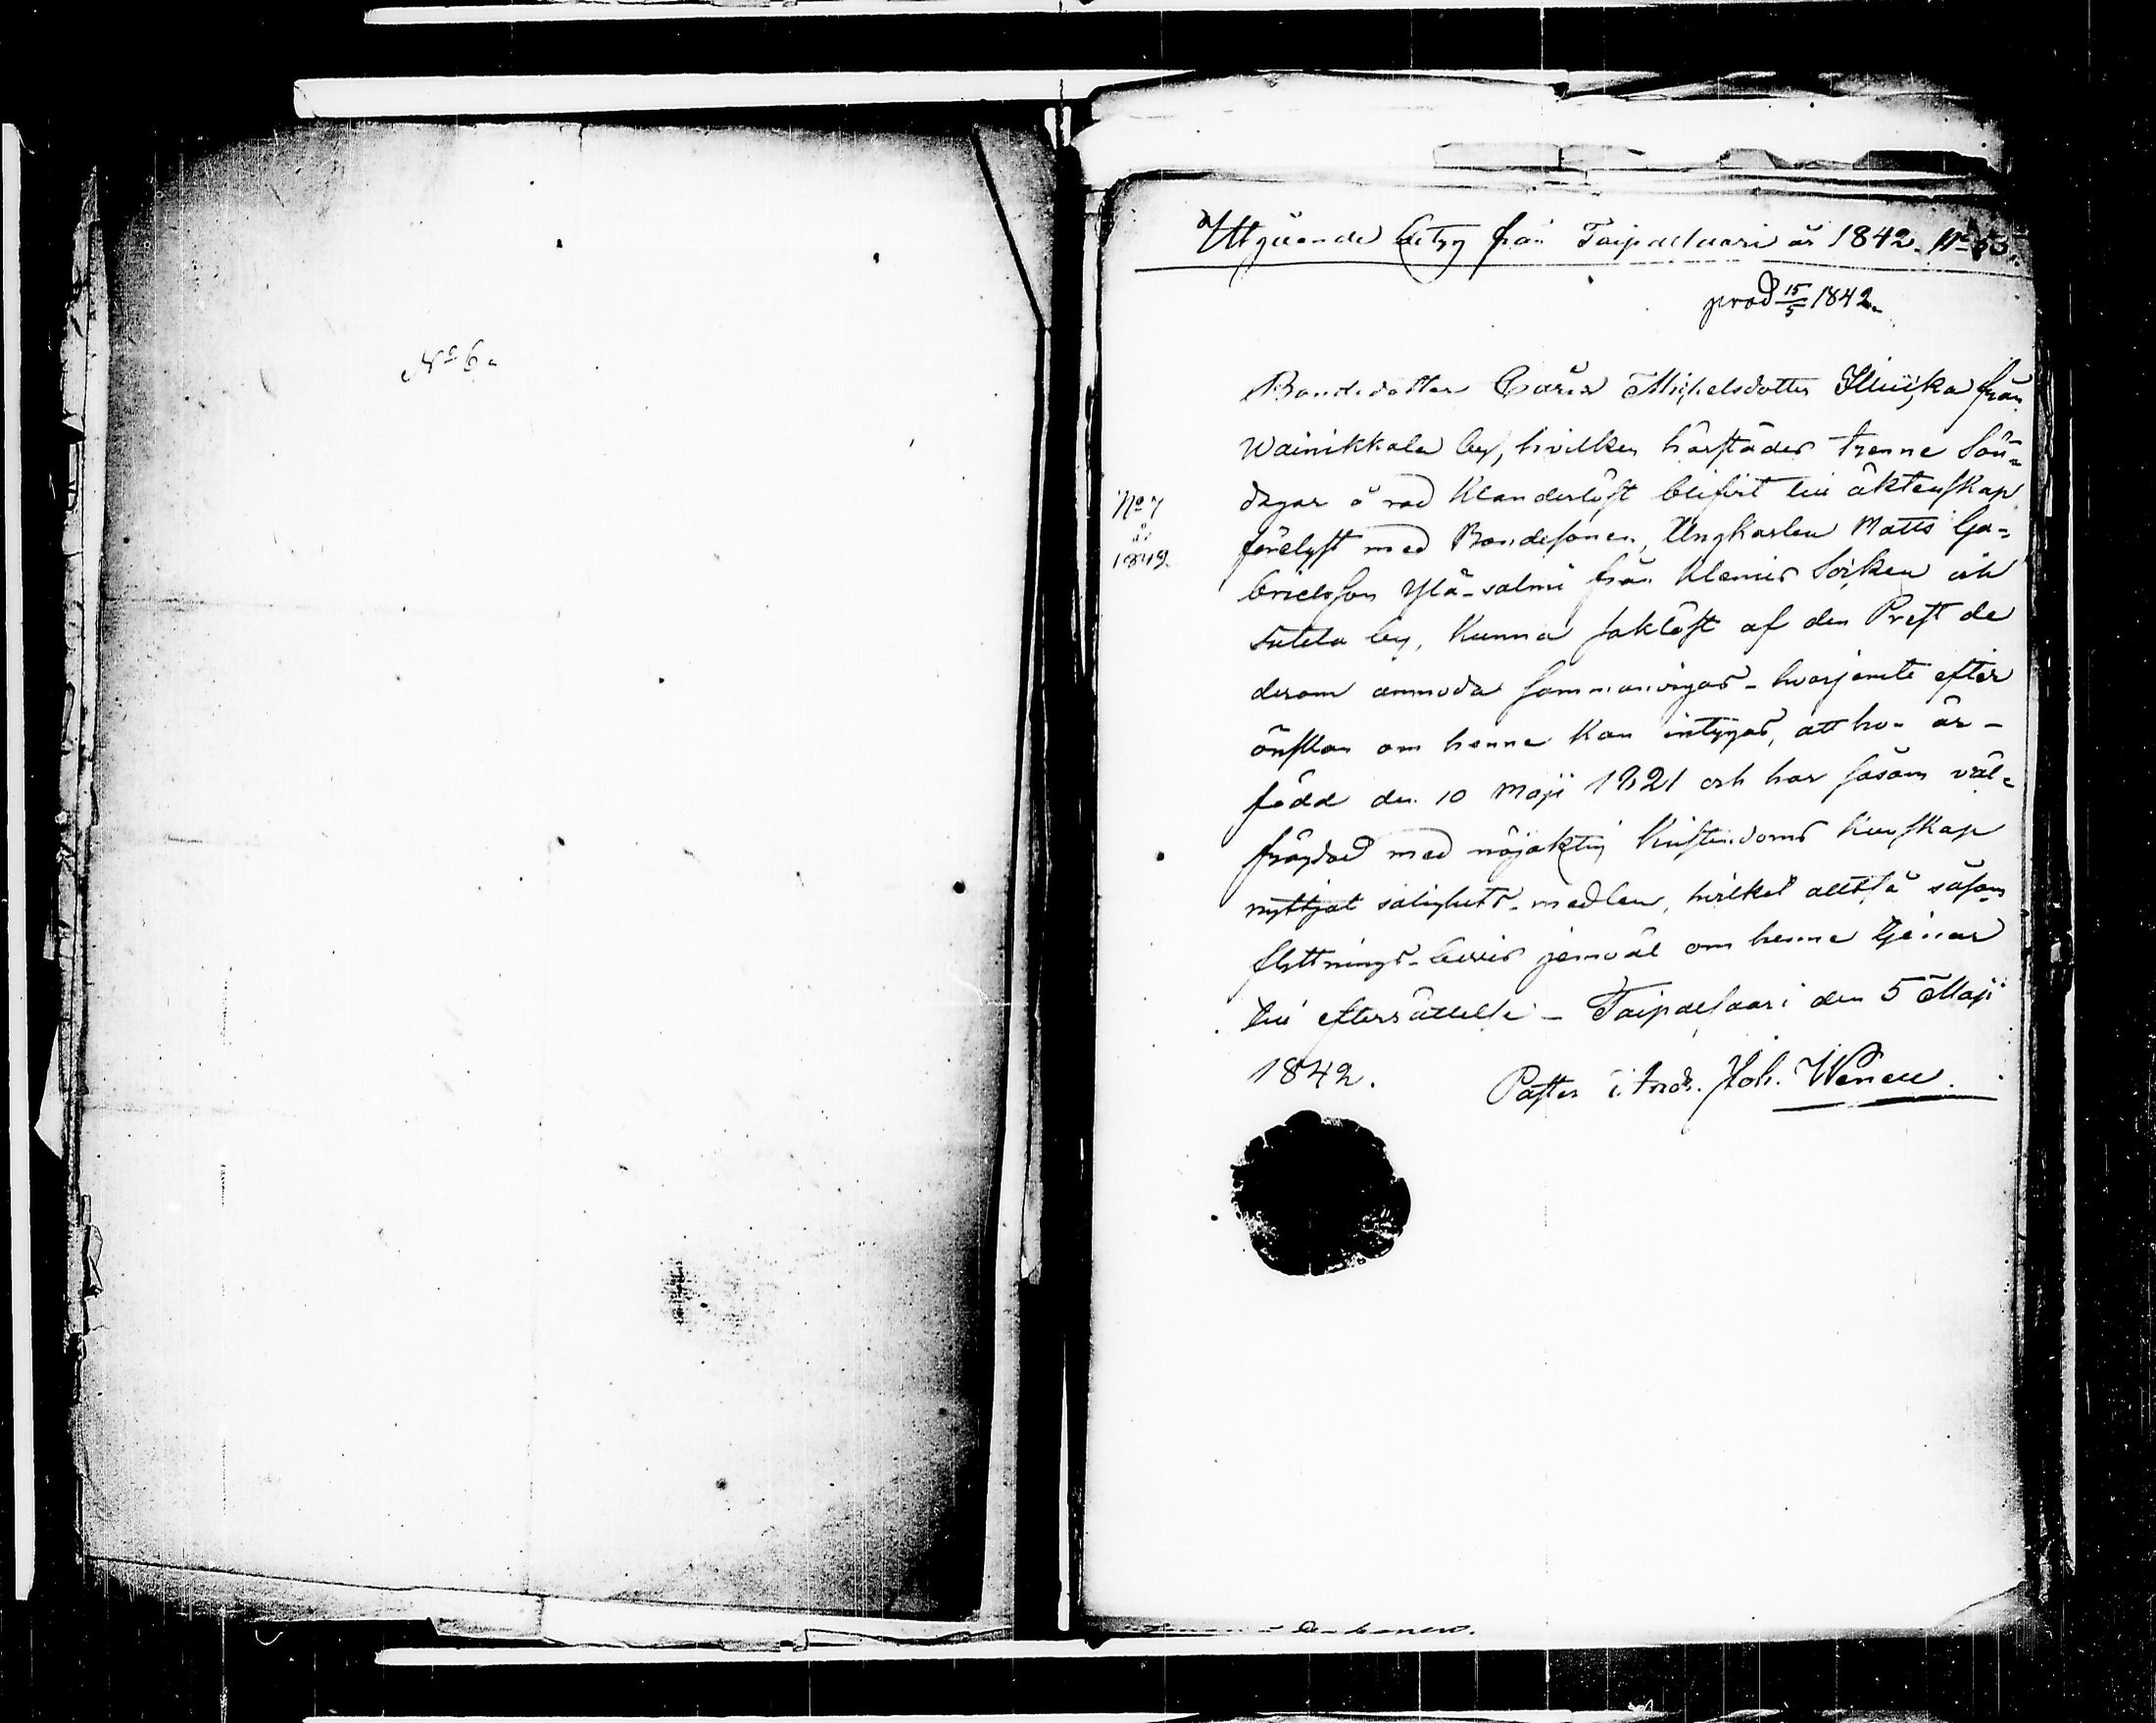 No 6.
Utgående betyg från Taipalsaari år 1842. No 53.
prod 15/5 1842.
Bondedotter Carin Michelsdotter Ilwiska från
Wainikkala by, hvilken härstädes trenne Sön-
dagar å rad Klanderlöst blifvit till äktenskap
No 7
år
1842.
förelyst med Bondesonen, Ungkarlen Matts Ga-
brielsson Ylä-salmi från Klemis Socken och
Sutela by, kunna saklöst af den Prest de
derom anmoda sammanvigas - hvarjemte efter
önskan om henne kan intygas, att hon är -
född den 10 Maji 1821 och har såsom väl-
frägdad med nöjaktig Christendoms kunskap
nyttjat salighets-medlen, hvilket alltså såsom
flyttnings-bevis jemväl om henne tjenar
till efterrättelse - Taipalsaari den 5 Maji
1842.
Pastor i. Joh. Wenell.